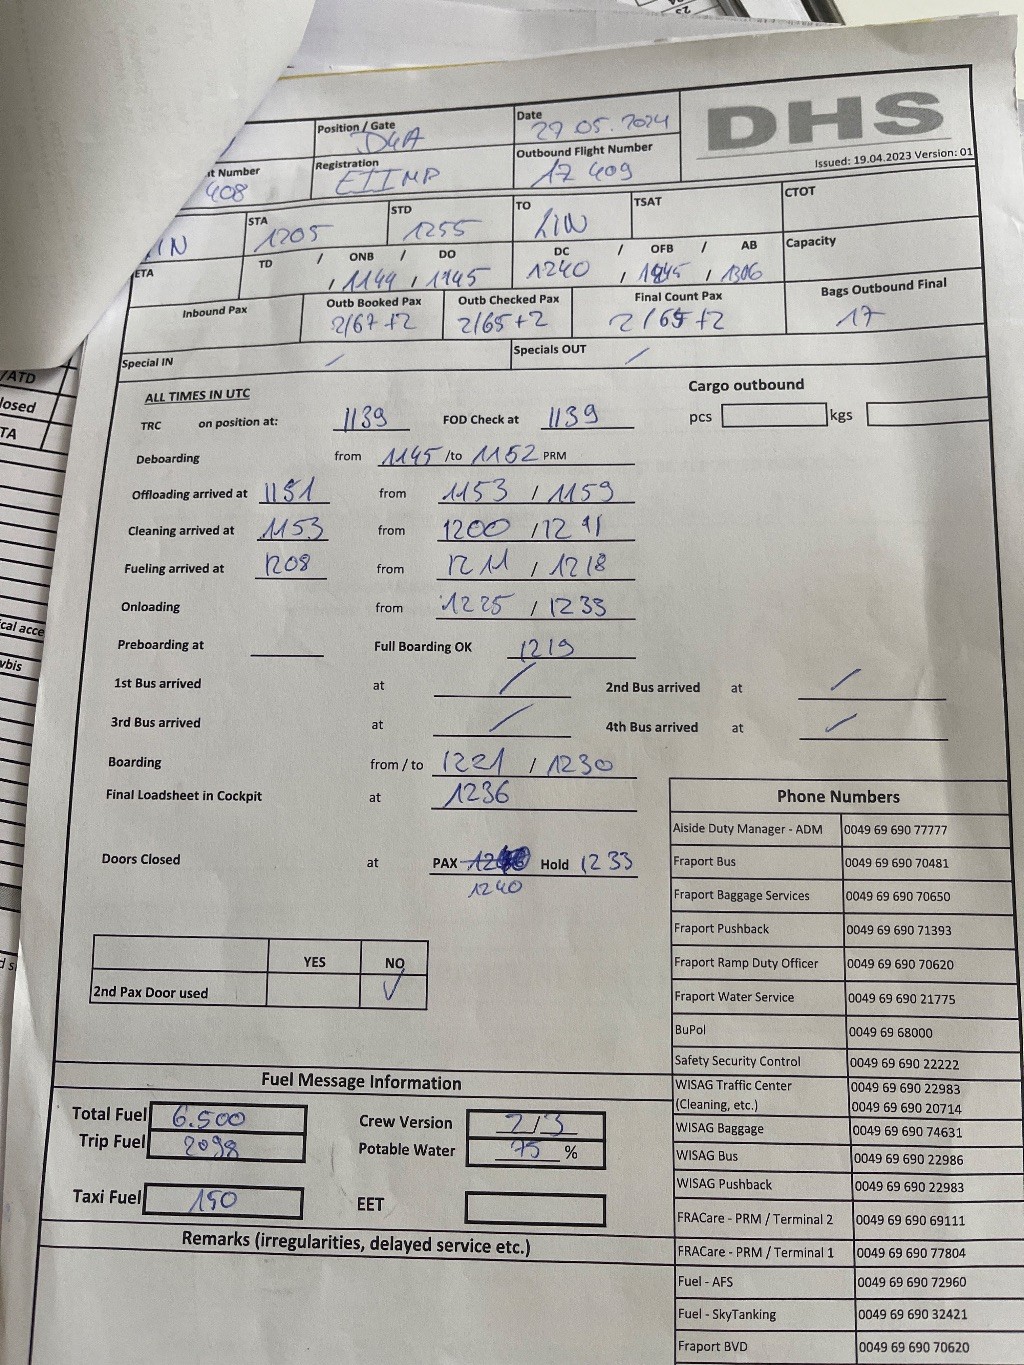 Position / Gate
D4A
Date
27 05. 2024
DHS
Issued: 19.04.2023 Version: 01
t Number
408
Registration
EIIMP
Outbound Flight Number
17 409
IN
STA
1205
STD
1255
TO
LIN
TSAT
CTOT
ETA
TD / ONB / DO
, 1144 , 1145
DC / OFB / AB
1240 , , 1306
Capacity
Inbound Pax
Outb Booked Pax
2/67+2
Outb Checked Pax
2/65+2
Final Count Pax
2/65+2
Bags Outbound Final
17
Special IN /
Specials OUT /
ALL TIMES IN UTC
Cargo outbound
TRC on position at: 1139 FOD Check at 1139
pcs kgs
Deboarding from 1145 /to 1152 PRM
Offloading arrived at 1151 from 1153 / 1159
Cleaning arrived at 1153 from 1200 / 1211
Fueling arrived at 1208 from 1211 / 1218
Onloading from 1225 / 1233
Preboarding at Full Boarding OK 1219
1st Bus arrived at / 2nd Bus arrived at /
3rd Bus arrived at / 4th Bus arrived at /
Boarding from / to 1221 / 1230
Final Loadsheet in Cockpit at 1236
Doors Closed at PAX Hold 1233
1240
YES NO
2nd Pax Door used ✓
Fuel Message Information
Total Fuel 6.500
Crew Version 2/3
Trip Fuel 2098
Potable Water 75 %
Taxi Fuel 150
EET
Remarks (irregularities, delayed service etc.)
Phone Numbers
Aiside Duty Manager - ADM 0049 69 690 77777
Fraport Bus 0049 69 690 70481
Fraport Baggage Services 0049 69 690 70650
Fraport Pushback 0049 69 690 71393
Fraport Ramp Duty Officer 0049 69 690 70620
Fraport Water Service 0049 69 690 21775
BuPol 0049 69 68000
Safety Security Control 0049 69 690 22222
WISAG Traffic Center 0049 69 690 22983
(Cleaning, etc.) 0049 69 690 20714
WISAG Baggage 0049 69 690 74631
WISAG Bus 0049 69 690 22986
WISAG Pushback 0049 69 690 22983
FRACare - PRM / Terminal 2 0049 69 690 69111
FRACare - PRM / Terminal 1 0049 69 690 77804
Fuel - AFS 0049 69 690 72960
Fuel - SkyTanking 0049 69 690 32421
Fraport BVD 0049 69 690 70620
/ATD
losed
TA
cal acce
wbis
d s